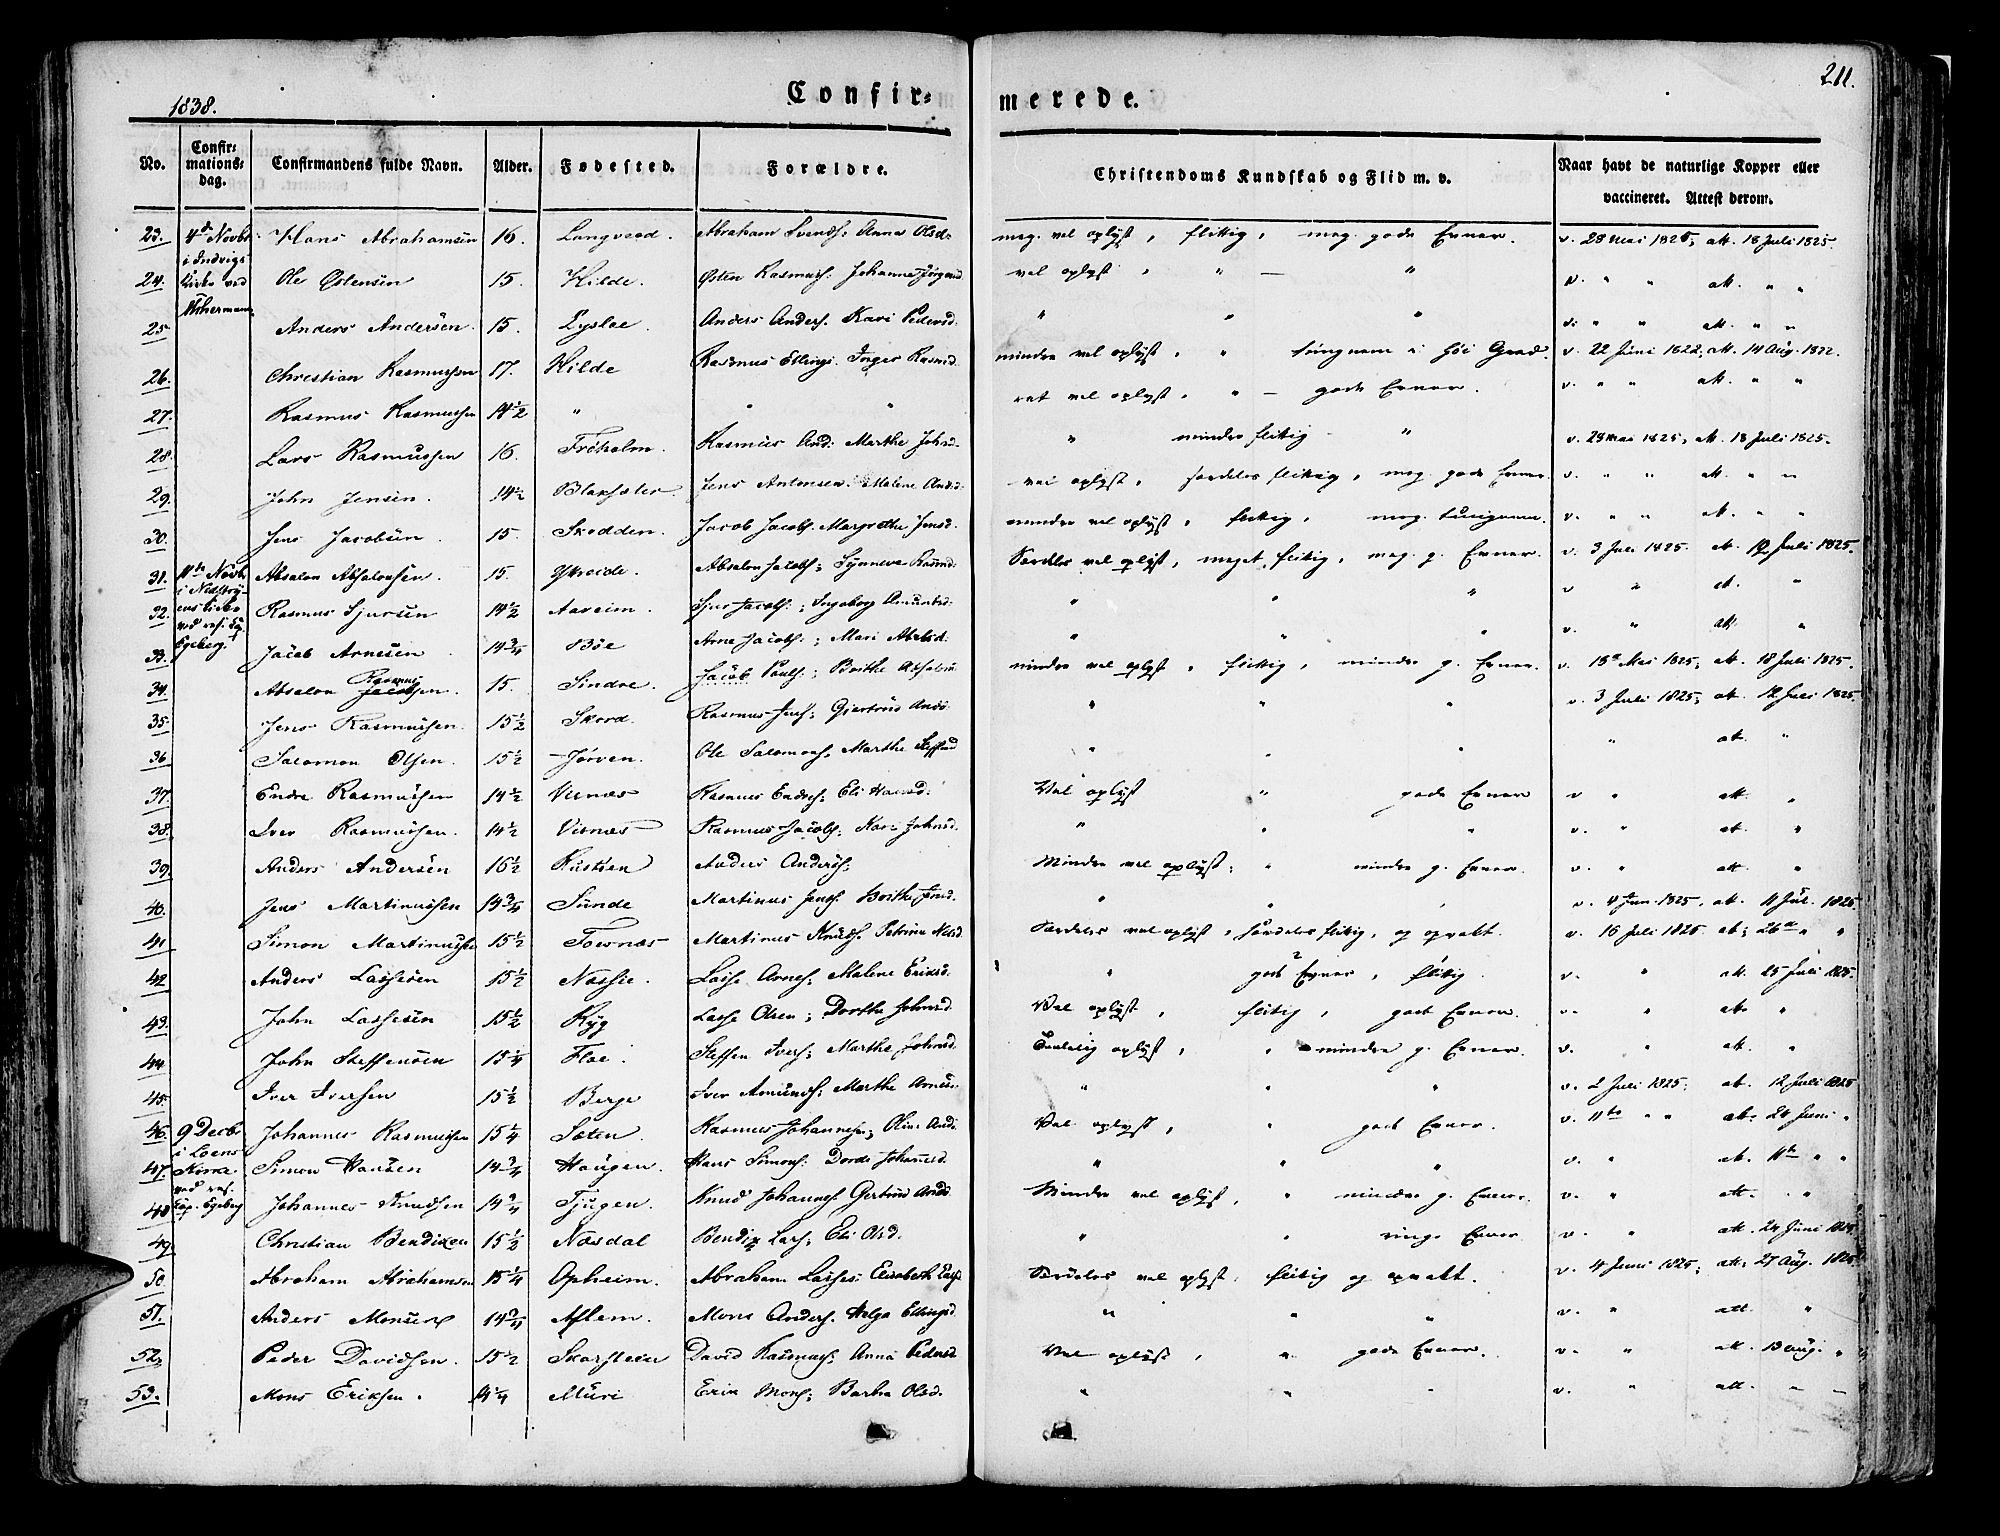 1838.
Confirmerede.
211.
No. Confirmationsdag. Confirmandens fulde Navn. Alder. Fødested. Forældre. Christendoms Kundskab og Flid m. v. Naar havt de naturlige Kopper eller vaccineret. Attest derom.
23. 4d Novbr Hans Abrahamsen 16. Langvead. Abraham Svends. Anna Olsd. meg. vel oplyst, flittig, meg. gode Evner. v. 28 Mai 1825, att. 18 Juli 1825.
i Indvigs
24. Kirke ved Ole Østensen 15. Hilde. Østen Rasmus. Johanne Jørgensd vel oplyst, " — " v. " " att. " "
25. Anders Andersen. 15. Eysloe. Anders Anders. Kari Pedersd. " " " v. " " att. " "
26. Christian Rasmussen 17. Hilde Rasmus Ellings. Inger Rasmd. mindre vel oplyst, " tungnem i høi Grad. v. 22 Juni 1822, att. 14 Aug. 1822.
27. Rasmus Rasmussen 14½ " " " ret vel oplyst, " — gode Evner. v. " " att. " "
28. Lars Rasmussen 16. Frøholm. Rasmus And. Marthe Johnsd. " mindre flittig — " v. 28 Mai 1825, att. 18 Juli 1825.
29. John Jensen. 14½ Blaksæter. Jens Antonsen. Malene Andsd. vel oplyst, særdeles flittig, meg. gode Evner v. " " att. " "
30. Jens Jacobsen. 15. Skodden. Jacob Jacobs. Margrethe Jensd. mindre vel oplyst, flittig, meg. tungnem. v. " " att. " "
31. 11te Novbr Absalon Absalonsen. 15. Yttreide. Absalon Jacobs; Synneva Rasmd. Særdeles vel oplyst, meget flittig, meg. g. Evner. v. 3 Juli 1825. att. 12 Juli 1825.
i Nedstry-
32. ens Kirke Rasmus Sjursen 14½ Aaveim. Sjur Jacobs; Ingeborg Amundsd. " " " v " att. "
ved res. Cap.
33. Egeberg. Jacob Arnesen 14¾ Bøe Arne Jacobs; Mari Absd. " " " v. " att. "
34. Absalon Rasmus Jacobsen. 15. Sindre. Jacob Pauls; Brithe Absalons. mindre vel oplyst, flittig, mindre g. Evner. v. 18d Mai 1825; att. 18 Juli 1825.
35. Jens Rasmussen. 15½ Skord. Rasmus Jens; Giertrud Andsd. " " " v. 3 Juli 1825; att. 12 Juli 1825
36. Salomon Olsen. 15½ Jørven. Ole Salomons. Marthe Steffensd " " " " att. "
37. Endre Rasmussen 14½ Visnæs Rasmus Endres; Eli Hansd. Vel oplyst " gode Evner v " att. "
38. Iver Rasmussen. 14½ Visnæs Rasmus Jacobs; Kari Johnsd. " " " v. " at. "
39. Anders Andersen 16½ Anders Anders; Mindre vel oplyst; " mindre g. Evner. v. " att. "
40. Jens Martinussen 14¾ Sunde Martinus Jens. Brithe Jensd. " " v. 4 Jun. 1825, att. 11 Jul. 1825
41. Simon Martinussen 15½ Tosnæs Martinus Knuds. Petrine Nilsd. Særdeles vel oplyst, særdeles flittig, og opvakt. v. 16 Juli 1825 at; 26d " "
42 Anders Lassesen 15½ Næsse. Lasse Arnes; Malene Eriksd. " gode Evner, flittig. v. " att. 25 Juli 1825.
43. John Lassesen 15½ Ryg Lasse Olsen; Dorthe Johnsd. Vel oplyst, flittig, gode Evner. v. " at. "
44. John Steffensen 15¼ Floe. Steffen Ivers; Marthe Johnsd. Temmelig oplyst, " mindre g. Evner. v. " att. "
45. Iver Iversen 15½ Berge Iver Amunds; Marthe " " " v. 2 Juli 1825; at. 12 Juli 1825
46. 9 Decbr Johannes Rasmussen 15¼ Sæten. Rasmus Johannesn; Oline Andsd. Vel oplyst, " gode Evner. v. 11te " " at. 24 Juni "
i Loens
47. Kirke Simon Hansen 14¾ Haugen. Hans Simons: Dorde Johansd. " " " v. " at. 11te " "
ved res.
48 Cap. Egeberg Johannes Knudsen 14¾ Tjugen. Knud Johannes Gertrud Andsd. Mindre vel oplyst, " mindre g. Evner. v. " att. " "
49. Christian Bendixen 15½ Næsdal Bendix Lars; Eli Olsd. " " ringe Evner. v. " att. 24 Juni
50 Abraham Abrahamsen 15¼ Opheim. Abraham Lasses; Elisabeth Særdeles vel oplyst, flittig og opvakt. v. 4 Juni 1825; att; 27 Aug. 1825
51. Anders Monsen 14¾ Aflem. Mons Anders. Helga Ellingsd. " " " v. " att. "
52. Peder Davidsen. 15½ Skarsteen David Rasmus; Anna Pedersd Vel oplyst, " gode Evner. v. " att. 13 Aug. "
53. Mons Eriksen. 14¼ Muri Erik Mons; Barbra Olsd. " " " v. " att. " "